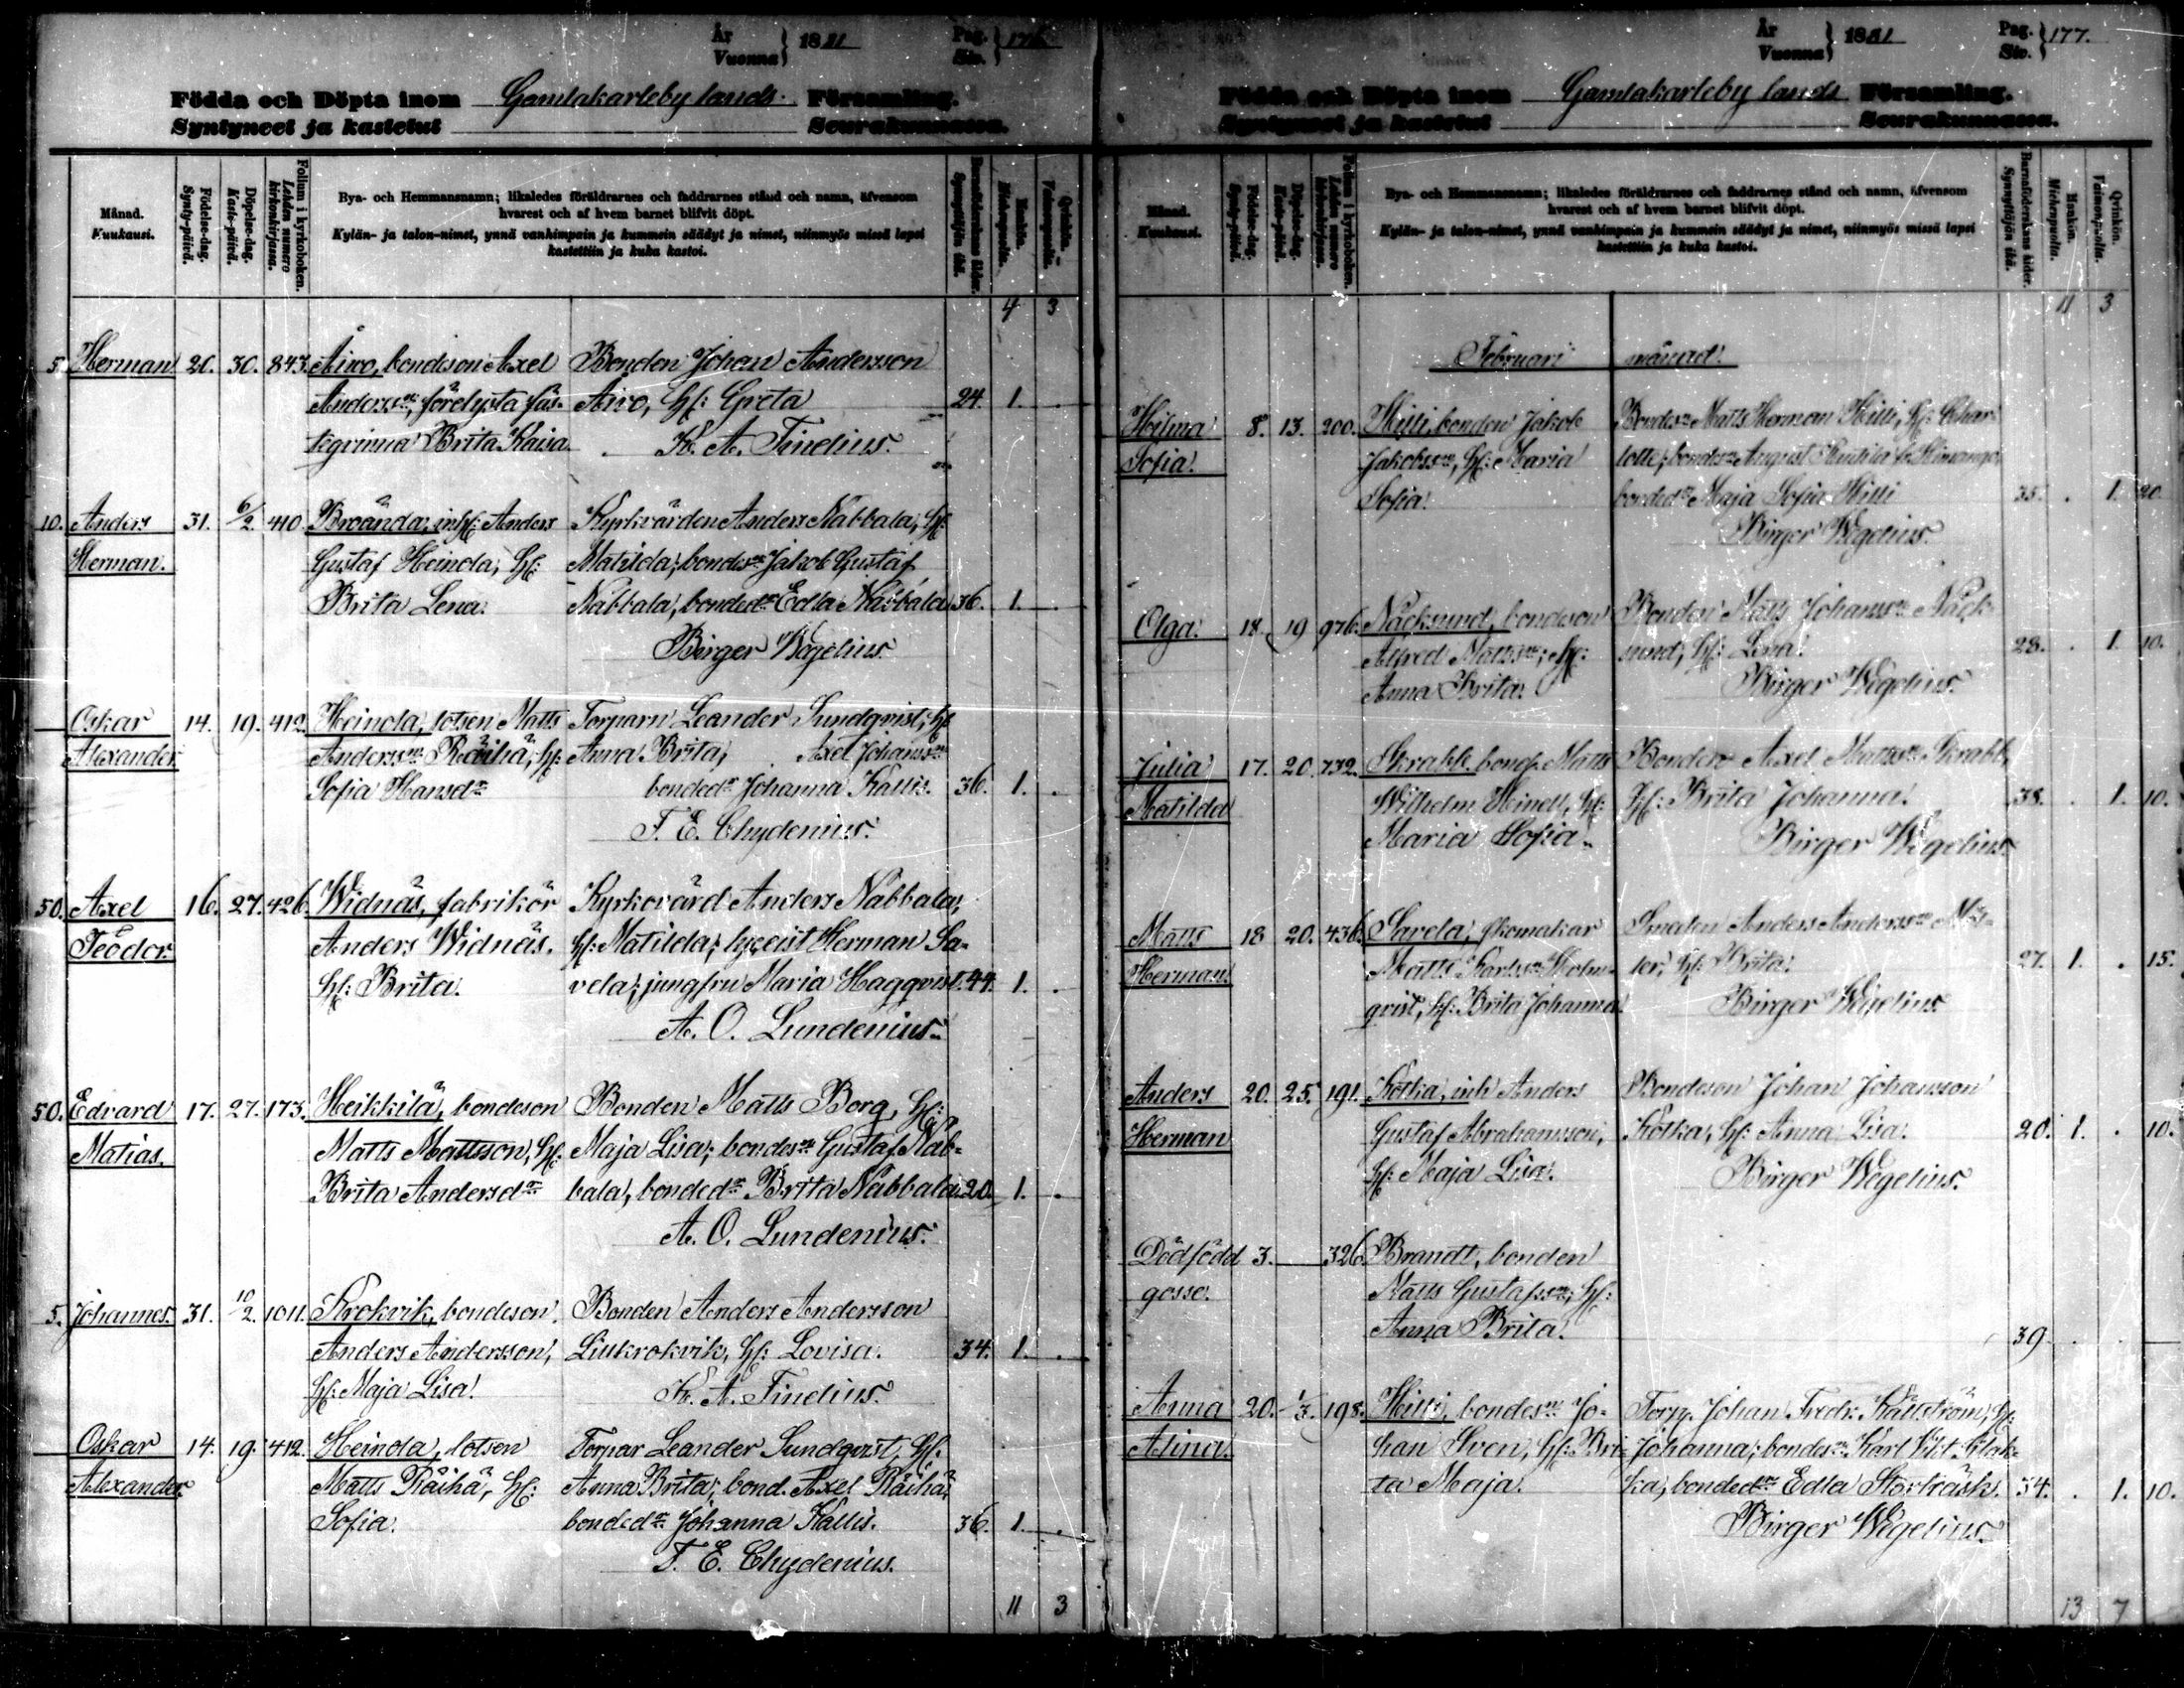 År
Vuonna } 1881
Pag.
Siv. } 176.
Födda och Döpta inom Gamlakarleby lands Församling.
Syntyneet ja kastetut Seurakunnassa.
Månad.
Kuukausi.
Födelse-dag.
Synty-päivä.
Döpelse-dag.
Kaste-päivä.
Folium i kyrkoboken.
Lehden numero kirkonkirjassa.
Bya- och Hemmansnamn; likaledes föräldrarnes och faddrarnes stånd och namn, äfvensom
hvarest och af hvem barnet blifvit döpt.
Kylän- ja talon-nimet, ynnä vanhimpain ja kummein säädyt ja nimet, niinmyös missä lapsi
kastettiin ja kuka kastoi.
Barnaföderskans ålder.
Synnyttäjän ikä.
Mankön.
Miehenpuolia.
Qvinkön.
Vaimonpuolia.
4 3
5. Herman 20. 30. 843. Åivo, bondeson Axel Bonden Johan Andersson
Anderssn, förelysta fäs- Åivo, hf: Greta 24. 1.
teqvinna Brita Kaisa. K. A. Tindius.
10. Anders 31. 6/2 410 Broända, inh: Anders Kyrkvärden Anders Nabbala, hf:
Herman. Gustaf Heinola, hf: Matilda; bondesn Jakob Gustaf
Brita Lena. Nabbala, bondedr Edla Nabbala 36. 1.
Birger Wegelius.
Oskar 14. 19. 412. Heinola, lotsen Matts Tornarn Leander Sundqvist, hf
Alexander Anderssn Räihä, hf: Anna Brita, Axel Johanssn
Sofia Hansdr bondedr Johanna Kallis. 36. 1.
F. E. Chydenius.
50. Axel 16. 27. 426. Widnäs, fabrikör Kyrkovärd Anders Nabbala,
Teodor. Anders Widnäs. hf: Matilda; lyceist Herman Sa-
hf: Brita. vela; jungfru Maria Haggqvist. 44. 1.
A. O. Lundenius.
50. Edvard 17. 27. 173. Heikkilä, bondeson Bonden Matts Borg, hf:
Matias. Matts Mattsson, hf: Maja Lisa; bondesn Gustaf Nab-
Brita Andersdr bala, bondedr Brita Nabbala. 20. 1.
A. O. Lundenius.
5. Johannes. 31. 10/2. 1011. Krokvik, bondeson. Bonden Anders Andersson
Anders Andersson, Lillkrokvik, hf: Lovisa. 34. 1.
hf: Maja Lisa. K. A. Tindius.
Oskar 14. 19. 412. Heinola, lotsen Tornar Leander Sundqvist, hf:
Alexander. Matts Räihä, hf: Anna Brita; bond. Axel Räihä,
Sofia. bondedr Johanna Kallis. 36. 1.
F. E. Chydenius.
11 3
År
Vuonna } 1881
Pag.
Siv. } 177.
Födda och Döpta inom Gamlakarleby lands Församling.
Syntyneet ja kastetut Seurakunnassa.
Månad.
Kuukausi.
Födelse-dag.
Synty-päivä.
Döpelse-dag.
Kaste-päivä.
Folium i kyrkoboken.
Lehden numero kirkonkirjassa.
Bya- och Hemmansnamn; likaledes föräldrarnes och faddrarnes stånd och namn, äfvensom
hvarest och af hvem barnet blifvit döpt.
Kylän- ja talon-nimet, ynnä vanhimpain ja kummein säädyt ja nimet, niinmyös missä lapsi
kastettiin ja kuka kastoi.
Barnaföderskans ålder.
Synnyttäjän ikä.
Mankön.
Miehenpuolia.
Qvinkön.
Vaimonpuolia.
11 3
Februari månad.
Hilma 8. 13. 200. Hilli, bonden Jakob Bondesn Matts Herman Hilli, hf: Char-
Sofia. Jakobssn, hf: Maria lotte; bondesn August
Sofia. bondedr Maja Sofia Hilli 35. 1. 20
Birger Wegelius.
Olga. 18. 19 976. Näcksund, bondeson Bonden Matts Johanssn Näck-
Alfred Mattssn; hf: sund, hf: Lena. 28. 1. 10.
Anna Brita. Birger Wegelius.
Julia 17. 20. 732. Skrabb. bond. Matts Bonden Axel Mattssn Skrabb,
Matilda Wilhelm Heinell, hf: hf: Brita Johanna. 38. 1. 10.
Maria Sofia. Birger Wegelius.
Matts 18 20. 436. Sarela, skomakar Smeden Anders Anderssn
Herman. Matts Karlssn Holm- ler, hf: Brita. 27. 1. 15.
qvist, hf: Brita Johanna. Birger Wegelius.
Anders 20. 25. 191. Kotka, inh Anders Bondeson Johan Johansson
Herman Gustaf Abrahamsson, Kotka, hf: Anna Lisa. 20. 1. 10.
hf: Maja Lisa. Birger Wegelius.
Dödfödd 3. 326. Brandt, bonden
gosse. Matts Gustafssn, hf:
Anna Brita. 39.
Anna 20. 1/3. 198. Hilli, bondesn Jo- Torp. Johan Fredr. Källström, hf:
Alina. han Sven, hf: Bri- Johanna; bondesn Karl Vikt.
ta Maja. ka, bondedr Edla Storträsk. 34. 1. 10.
Birger Wegelius
13 7